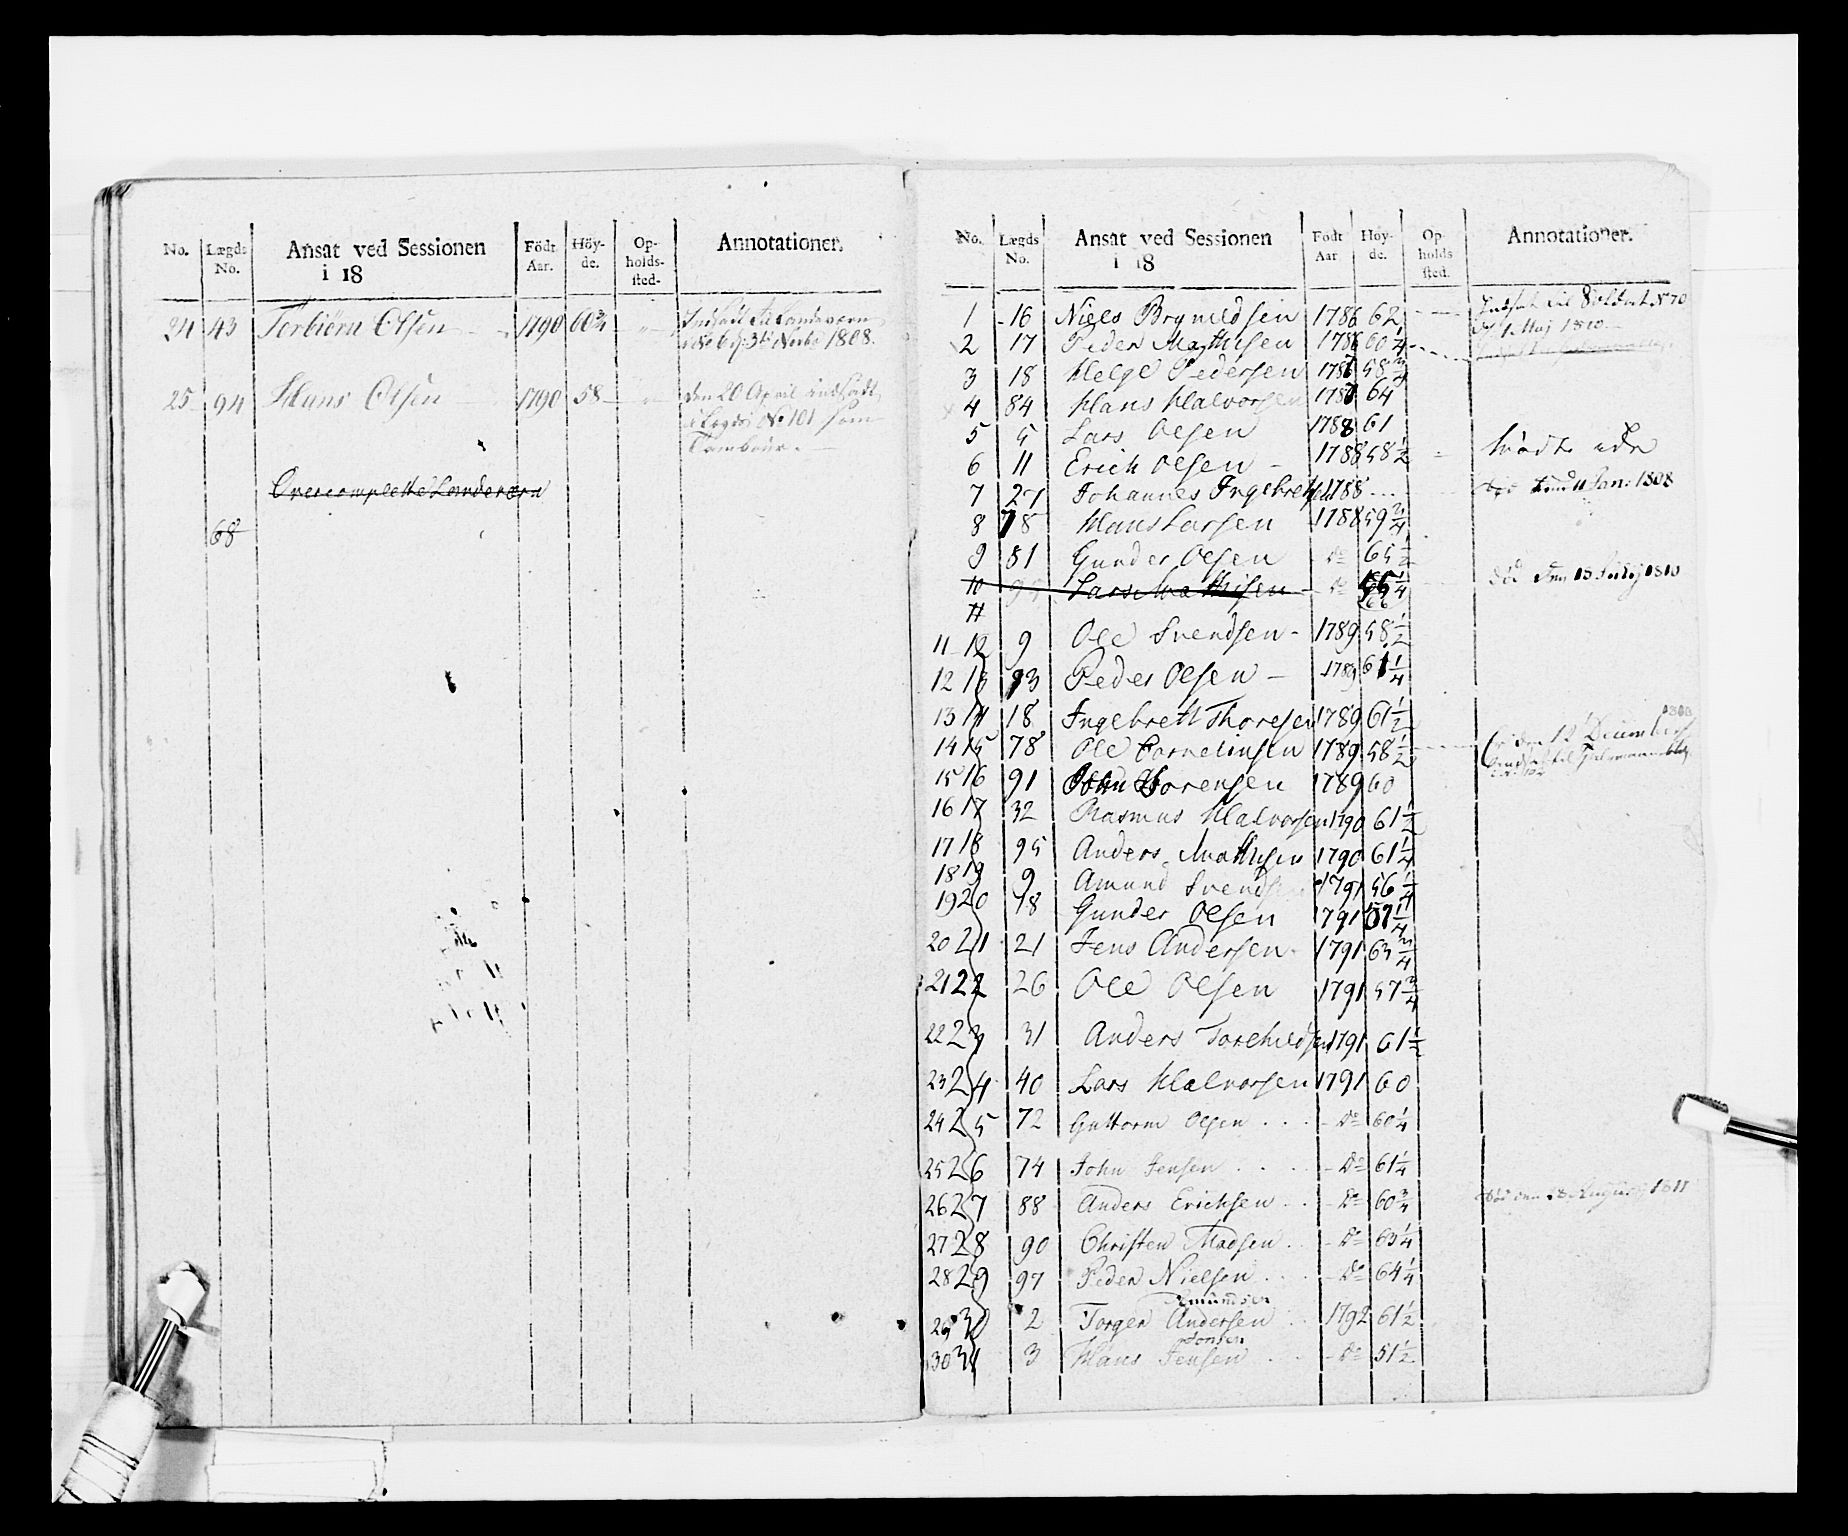 No. Lægds No. Ansat ved Sessionen i 18 Födt Aar. Höy- de. Op- holds- sted. Annotationer.
24 43 Torbiörn Olsen 1790 60¾ " Indsadt til Landeværn
i No 69: 3de Novbr 1808.
25 94 Hans Olsen 1790 58 " den 20 April indsadt
i Legds No 101 som
Tambour.
Overcomplette Landeværn
68
No. Lægds No. Ansat ved Sessionen i 18 Födt Aar Höy- de. Op- holds sted. Annotationer.
1 16 Niels Brynildsen 1786 62 Indsat til Soldat
1 Maj 1810
2 17 Peder Mathisen 1786 60¼
3 18 Helge Pedersen 58¾
4 84 Hans Halvorsen 64
5 5 Lars Olsen 1788 61
6 11 Erich Olsen 1788 58½ mödte
7 27 Johannes Ingebretsen 1788 11 Jan: 1808
8 78 Hans Larsen 1788 59¾
9 81 Gunder Olsen do 65½
10 95 Lars Mathisen do död den 18 July 1810
11
11 12 9 Ole Svendsen 1789 58½
12 13 93 Peder Olsen 1789 61¼
13 14 18 Ingebrett Thoresen 1789 61½
14 15 78 Ole Cornelius‌en 1789 58½ den 12 December 1808
15 16 91 John Sörensen 1789 60
16 17 32 Rasmus Halvorsen 1790 61½
17 18 95 Anders Mathisen 1790 61¼
18 19 9 Amund Svendsen 1791 56¼
19 20 18 Gunder Olsen 1791 57¼
20 21 21 Jens Andersen 1791 63¾
21 22 26 Ole Olsen 1791 57¾
22 23 31 Anders Torchildsen 1791 61½
23 24 40 Lars Halvorsen 1791 60
24 25 72 Guttorm Olsen do 60¼
25 26 74 John Jensen do 61¼
26 27 88 Anders Erichsen do 60¾ död den 28 August 1811
27 28 90 Christen Madsen do 63¼
28 29 97 Peder Nielsen do 64¼
Amundsen
29 30 2 Torger Andersen 1792 61½
Jonsen
30 31 3 Hans Jensen do 51½